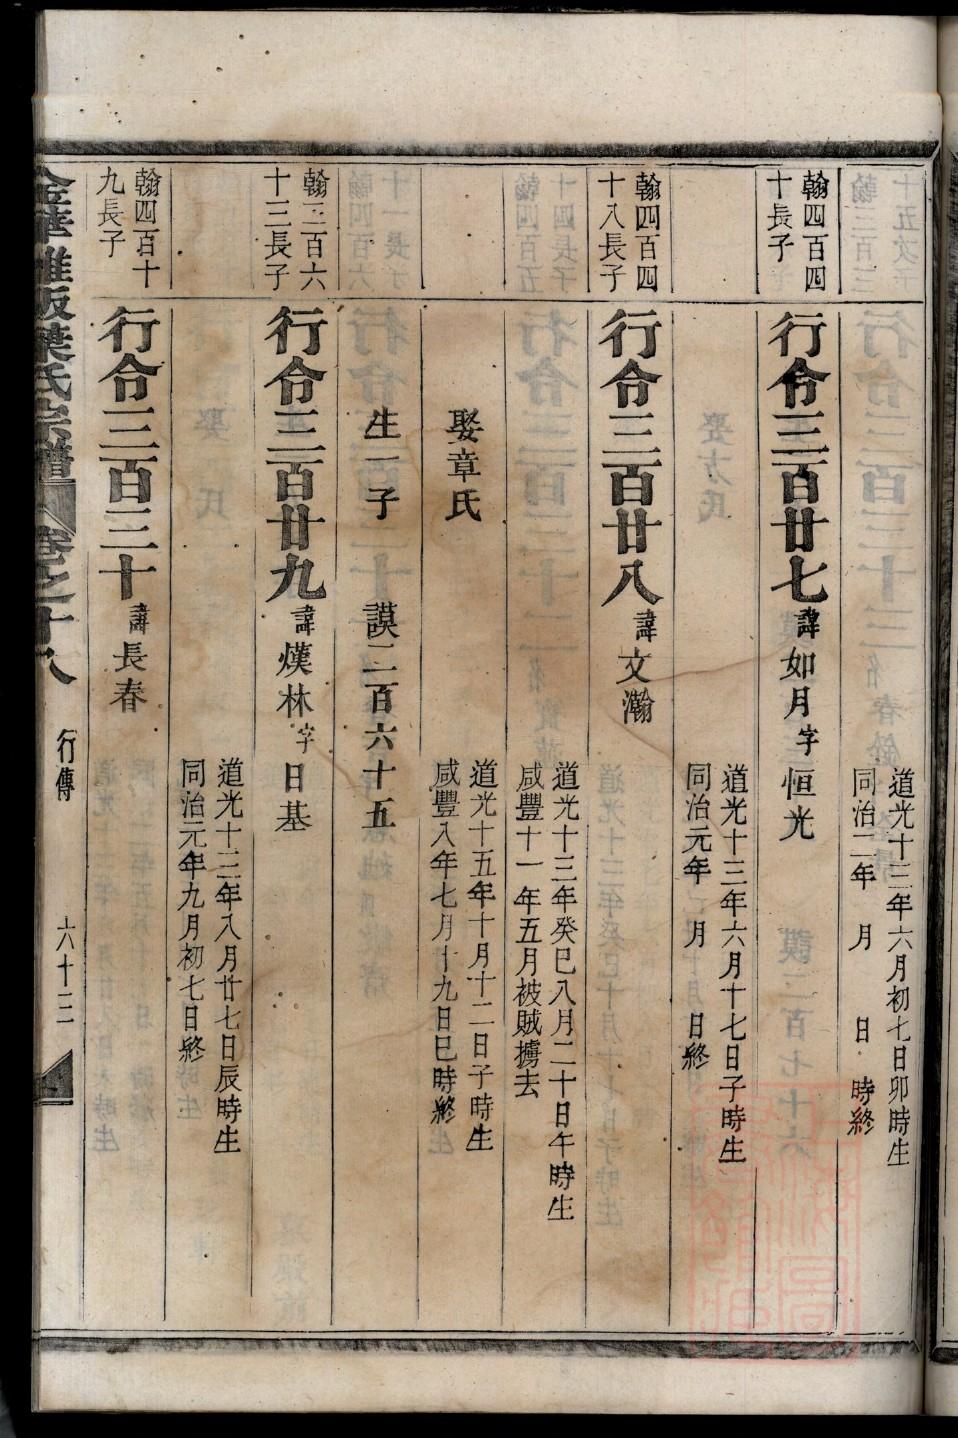 道光十二年六月初七日卯時生
同治二年　月　日　時終
翰四百四
十長子
行令三百廿七諱如月字恒光
道光十三年六月十七日子時生
同治元年　月　日終
翰四百四
十八長子
行令三百廿八諱文瀚
道光十三年癸巳八月二十日午時生
咸豐十一年五月被賊擄去
娶章氏
道光十五年十月十二日子時生
咸豐八年七月十九日巳時終
生一子　謨二百六十五
翰三百六
十三長子
行令三百廿九諱熯林字日基
道光十三年八月廿七日辰時生
同治元年九月初七日終
翰四百十
九長子
行令三百三十諱長春
金華雅畈葉氏宗譜　卷之十八　行傳　六十三